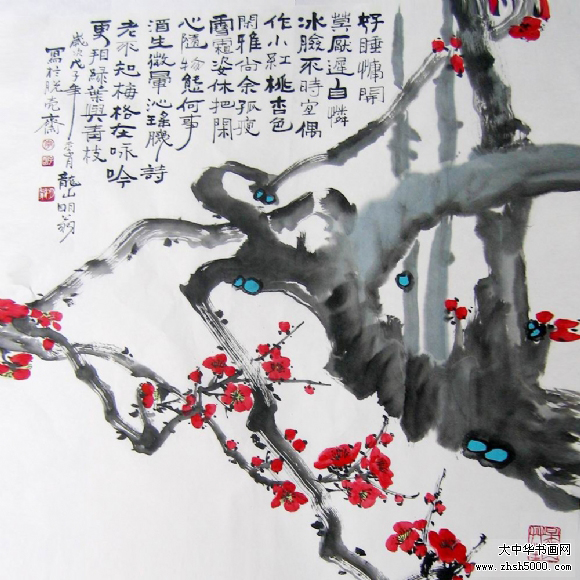 好睡慵開
莫厭遲自憐
冰臉不時宜偶
作小紅桃杏色
閑雅尚余孤瘦
雪霜姿休把閑
心隨物態何事
酒生微暈沁瑤肌詩
老不知梅格在咏吟
更看綠葉與青枝
歲次戊子年 龍山明翁
寫於 亮齋
大中华书画网
www.zhsh5000.com